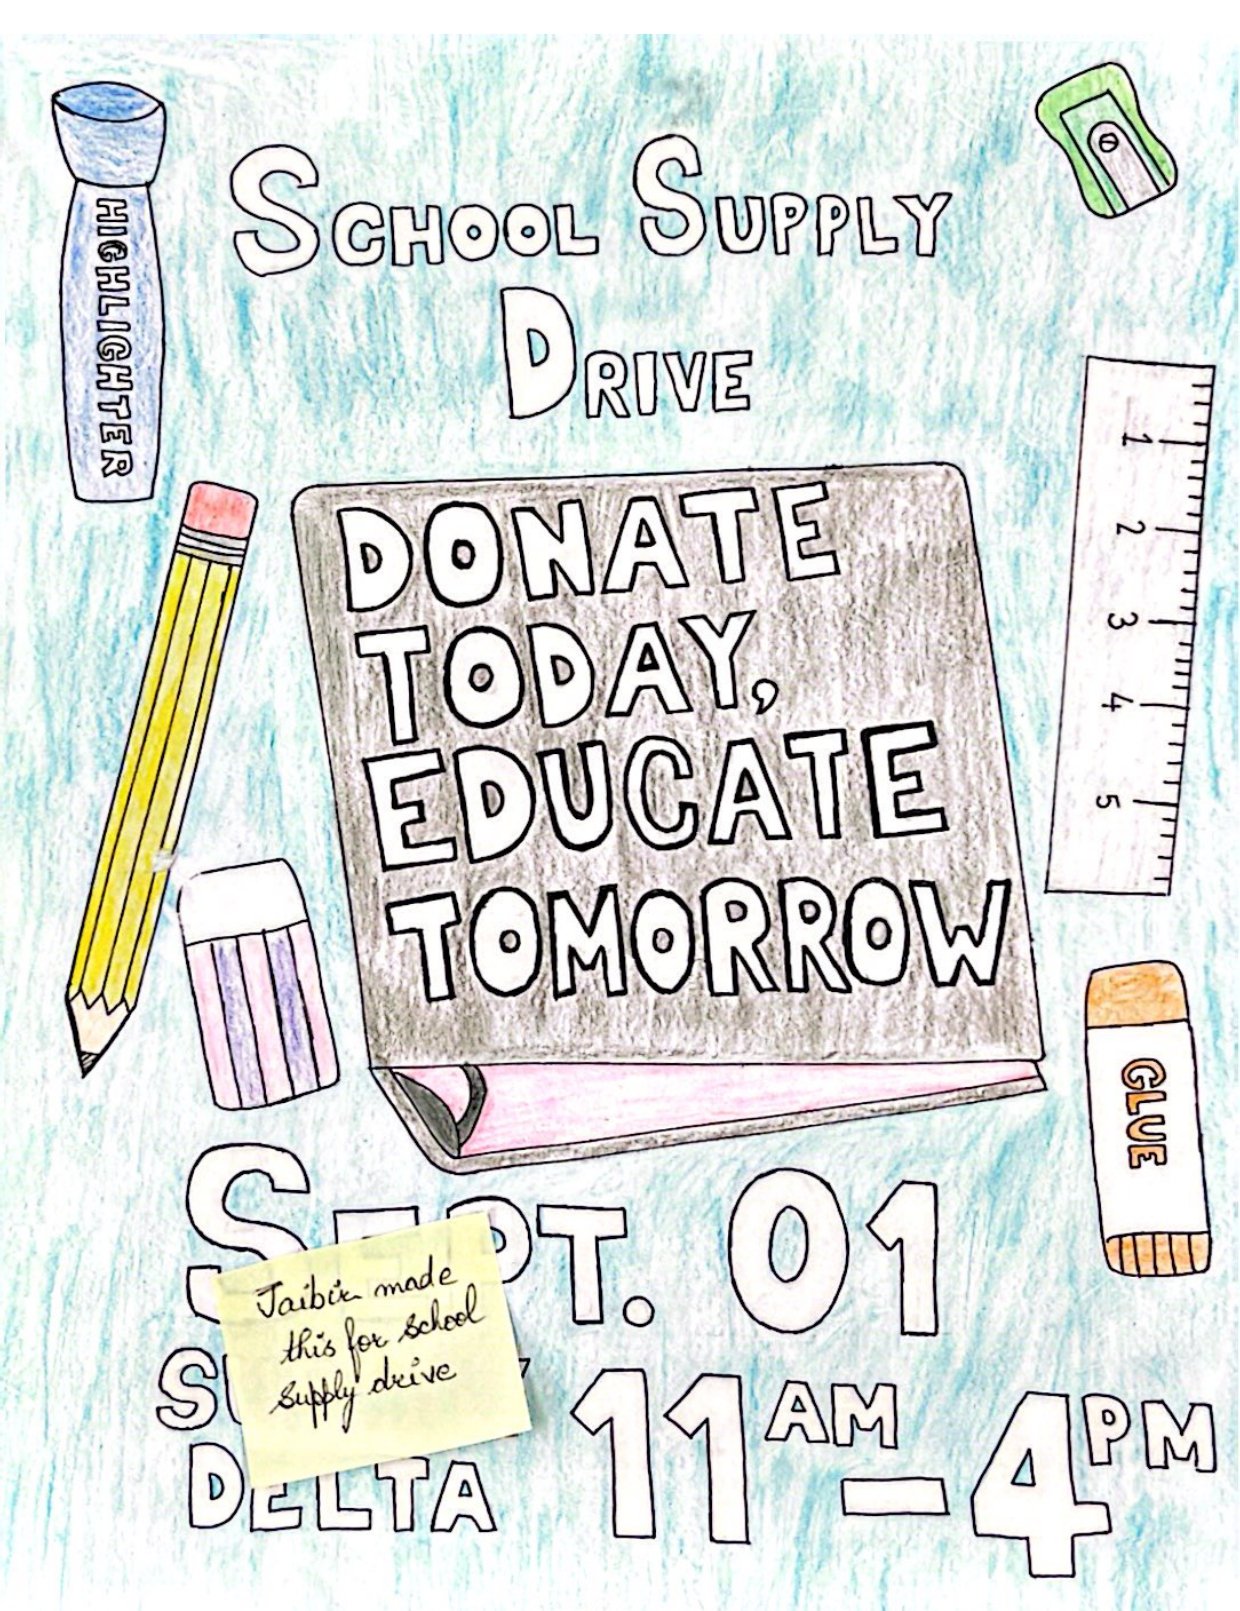 HIGHLIGHTER
SCHOOL SUPPLY
DRIVE
1
2
3
4
5
DONATE
TODAY,
EDUCATE
TOMORROW
GLUE
SEPT. 01
Jaibir made
this for school
supply drive
11AM–4PM
DELTA